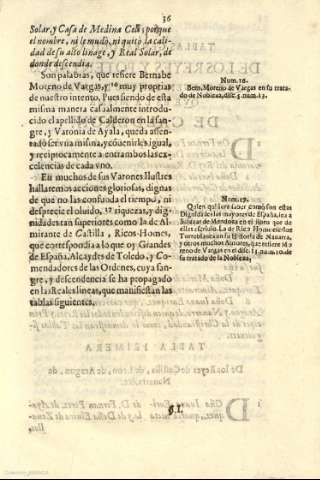 36
Solar, y Casa de Medina Celi, porque
el nombre, ni le mudo, ni quitò la cali-
dad de su alto linage, y Real Solar, de
donde descendia.
Son palabras, que refiere Bernabe
Moreno de Vargas, y 16 muy proprias
de nuestro intento. Pues siendo de esta
misma manera casualmente introdu-
cido el apellido de Calderon en la san-
gre, y Varonia de Ayala, queda assen-
tado ser vna misma, y convenirles igual,
y reciprocamente à entrambos las ex-
celencias de cada vno.
En muchos de sus Varones Ilustres
hallaremos acciones gloriosas, dignas
de que no las confunda el tiempo, ni
desprecie el oluido, 17 riquezas, y dig-
nidades tan superiores como la de Al-
mirante de Castilla, Ricos-Homes,
que correspondia a lo que oy Grandes
de España, Alcaydes de Toledo, y Co-
mendadores de las Ordenes, cuya san-
gre, y descendencia se ha propagado
en las Reales lineas, que manifiestan las
tablas siguientes.
Num. 16.
Bern. Moreno de Vargas en su trata-
do de Nobleza, disc. 5. num. 13.
Num. 17.
Quien quisiere saber como son estas
Dignidades las mayores de España, lea a
Salazar de Mendoza en el libro que de
ellas escriuio. La de Rico Home escriuè
Torreblanca en la Historia de Nauarra,
y otros muchos Autores, que refiere Mo
reno de Vargas en el disc. 15. num. 10. de
su tratado de la Nobleza.
§. I.